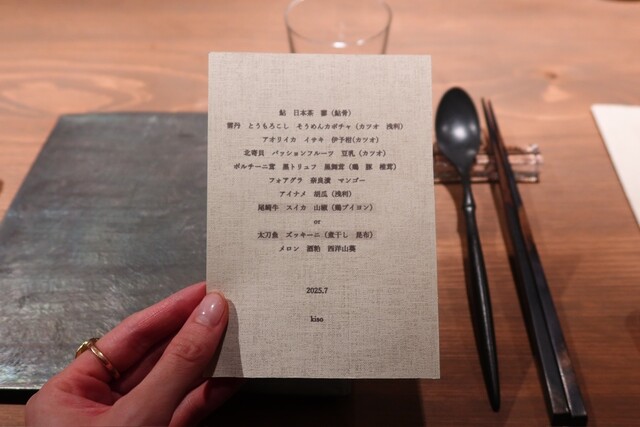 鮎　日本茶　蓼（鮎骨）
雲丹　とうもろこし　そうめんカボチャ（カツオ　浅利）
アオリイカ　イサキ　伊予柑（カツオ）
北寄貝　パッションフルーツ　豆乳（カツオ）
ポルチーニ茸　黒トリュフ　黒舞茸（鶏　豚　椎茸）
フォアグラ　奈良漬　マンゴー
アイナメ　胡瓜（浅利）
尾崎牛　スイカ　山椒（鶏ブイヨン）
or
太刀魚　ズッキーニ（煮干し　昆布）
メロン　酒粕　西洋山葵
2025,7
kiso